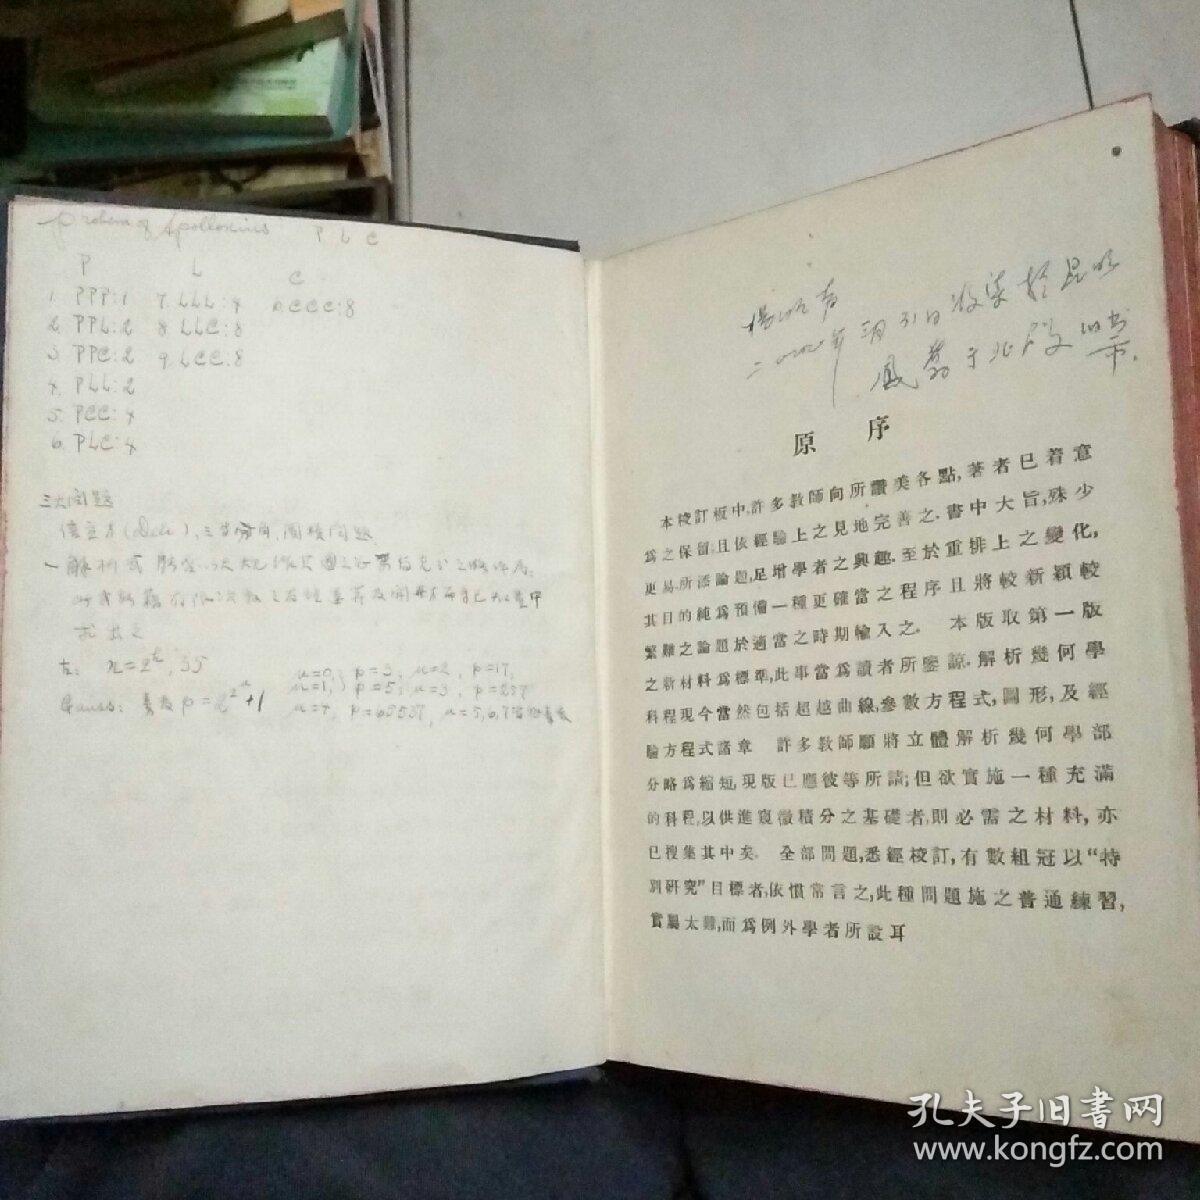 Problem of Apollonius P L C
P L C
1. PPP:1 7. LLL:4 10. CCC:8
2. PPL:2 8. LLC:8
3. PPC:2 9. LCC:8
4. PLL:2
5. PCC:4
6. PLC:4
三大問題
倍立方(Deli),三等分角,圓積問題
求出之
左: 35
Gauss: 素数 p=2^2^n+1
n=0, p=3, n=2, p=17,
n=1, p=5; n=3, p=257
n=4, p=65537, n=5,6,7
原序
本校訂板中,許多教師向所讚美各點,著者已着意
爲之保留,且依經驗上之見地完善之.書中大旨,殊少
更易.所添論題,足增學者之興趣.至於重排上之變化,
其目的純爲預備一種更確當之程序且將較新穎較
繁難之論題於適當之時期輸入之. 本版取第一版
之新材料爲標準,此事當爲讀者所鑒諒.解析幾何學
科程現今當然包括超越曲線,參數方程式,圖形,及經
驗方程式諸章 許多教師願將立體解析幾何學部
分略爲縮短,現版已應彼等所請;但欲實施一種充滿
的科程,以供進窺微積分之基礎者,則必需之材料,亦
已搜集其中矣. 全部問題,悉經校訂,有數組冠以“特
別研究”目標者,依慣常言之,此種問題施之普通練習,
嘗屬太難,而爲例外學者所設耳
孔夫子旧书网
www.kongfz.com